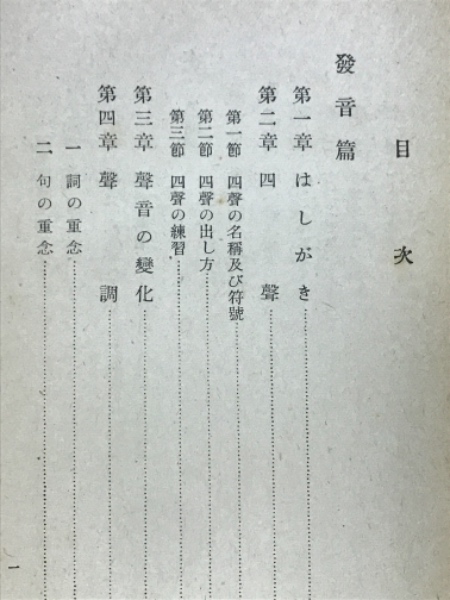 目次
發音篇
第一章 はしがき
第二章 四聲
第一節 四聲の名稱及び符號
第二節 四聲の出し方
第三節 四聲の練習
第三章 聲音の變化
第四章 聲調
一 詞の重念
二 句の重念
一